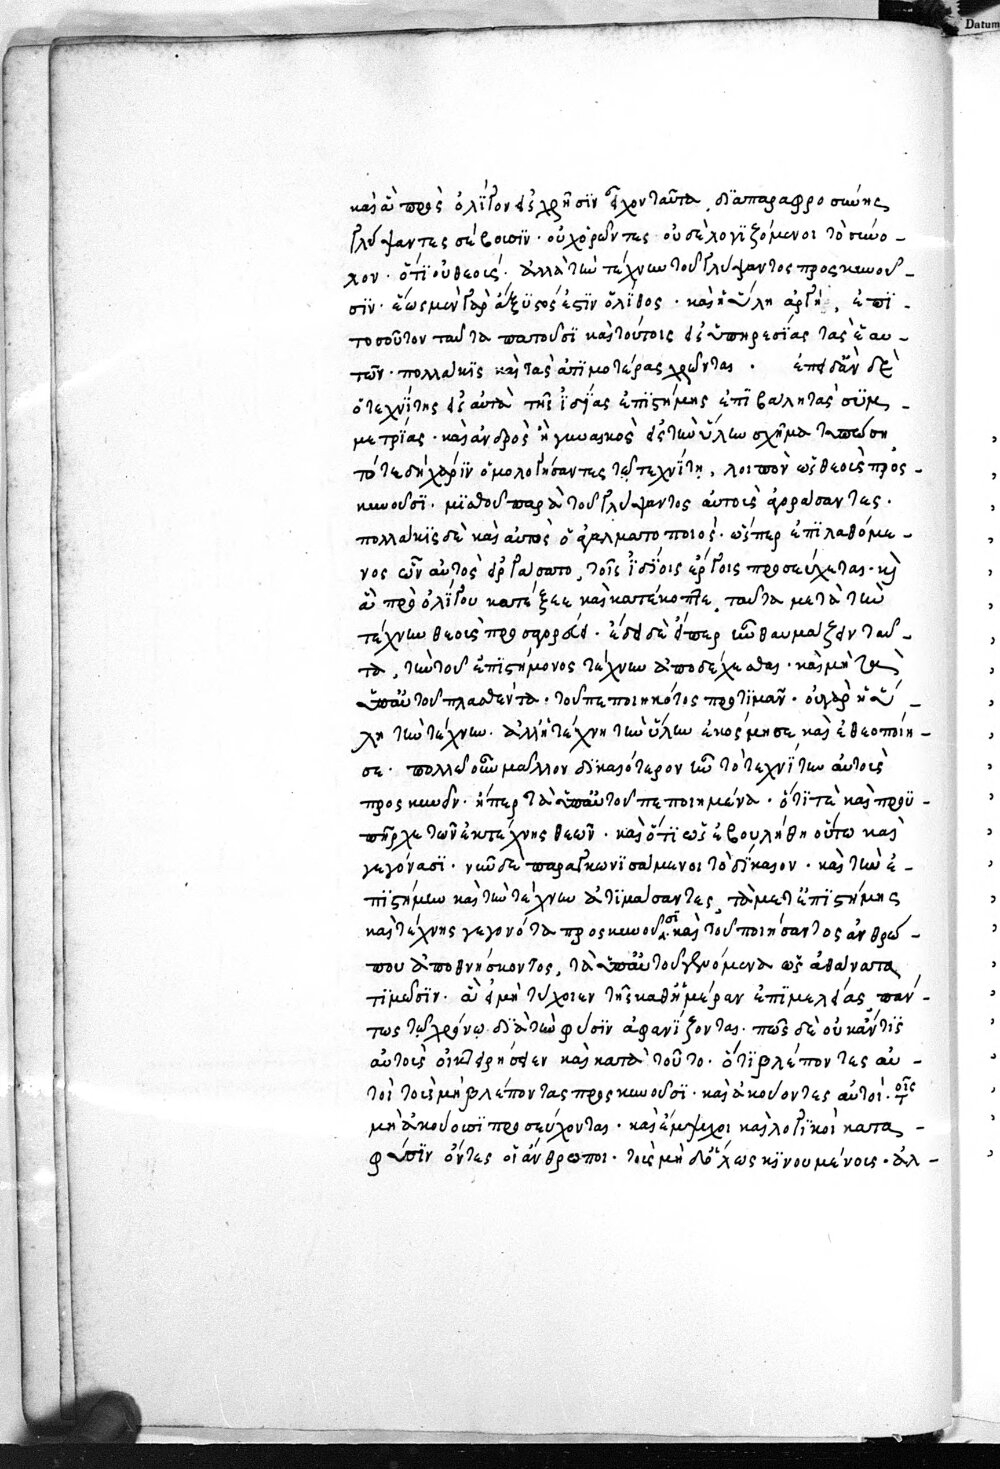 καὶ ἃ πρὸς ὀλίγον εἰς χρῆσϊν εἶχον ταῦτα, δϊαπαραφροσύνης
γλύψαντες σέβουσϊν· οὐχὁρῶντες οὐδὲλογιζόμενοι τὸ σύνο-
λον· ὅτϊ οὐ θεοὺς· ἀλλὰ τὴν τέχνην τοῦ γλύψαντος προσκυνοῦ-
σϊν· ἕως μὲν γὰρ ἄξϋστός ἐστϊν ὁ λίθος· καὶ ἡ ὕλη ἀργὴ, ἐπϊ-
τοσοῦτον ταῦτα πατοῦσϊ καὶ τούτοις εἰς ὑπηρεσΐας τὰς ἑαυ-
τῶν· πολλάκϊς καὶ τὰς ἀτϊμοτέρας χρῶνται· ἐπειδὰν δὲ
ὁ τεχνΐτης εἰς αὐτὰ τῆς ἰδΐας ἐπϊστήμης ἐπϊβάλη τὰς σϋμ-
μετρΐας· καὶ ἀνδρὸς ἢ γυναικὸς εἰς τὴν ὕλην σχῆμα τυπώση
τότε δὴ χάρϊν ὁμολογήσαντες τῷ τεχνΐτῃ, λοιπὸν ὡς θεοὺς προσ-
κυνοῦσϊ· μϊσθοῦ παρὰ τοῦ γλύψαντος αὐτοὺς ἀγοράσαντες·
πολλάκϊς δὲ καὶ αὐτὸς ὁ ἀγαλματοποιὸς· ὥσπερ ἐπϊλαθόμε-
νος ὧν αὐτὸς εἰργάσατο, τοῖς ἰδΐοις ἔργοις προσεύχεται· καὶ
ἃ πρὸ ὀλΐγου κατέξεε καὶ κατέκοπτε, ταῦτα μετὰ τὴν
τέχνην θεοὺς προσαγορεύει· ἔδει δὲ εἴπερ ἦν θαυμάζειν ταῦ-
τα, τὴν τοῦ ἐπϊστήμονος τέχνην ἀποδέχεσθαι· καὶ μὴ τὰ
ὑπ αὐτοῦ πλασθέντα· τοῦ πεποιηκότος προτϊμᾶν· οὐ γὰρ ἡ ὕ-
λη τὴν τέχνην· ἀλλ ἡ τέχνη τὴν ὕλην ἐκόσμησε καὶ ἐθεοποίη-
σε· πολλῶ οὖν μᾶλλον δϊκαιότερον ἦν τὸ τεχνΐτην αὐτοὺς
προσκυνεῖν· ἤπερ τὰ ὑπ αὐτοῦ πεποιημένα· ὅτϊ τὲ καὶ προϋ-
πῆρχε τῶν ἐκ τέχνης θεῶν· καὶ ὅτϊ ὡς ἐβουλήθη οὕτω καὶ
γεγόνασϊ· νῦν δὲ παραγκωνϊσάμενοι τὸ δΐκαιον· καὶ τὴν ἐ-
πϊστήμην καὶ τὴν τέχνην ἀτϊμάσαντες, τὰ μετ ἐπϊστήμης
καὶ τέχνης γεγονότα προσκυνοῦσϊ· καὶ τοῦ ποιήσαντος ἀνθρώ-
που ἀποθνήσκοντος, τὰ ὑπ αὐτοῦ γενόμενα ὡς ἀθάνατα
τϊμῶσϊν· ἃ εἰ μὴ τύχοιεν τῆς καθ ἡμέραν ἐπϊμελείας πάν-
τως τῷ χρόνῳ δϊὰ τὴν φύσϊν ἀφανΐζονται· πῶς δὲ οὐκ ἄν τϊς
αὐτοὺς οἰκτειρήσειεν καὶ κατὰ τοῦτο· ὅτϊ βλέποντες αὐ-
τοὶ τοὺς μὴ βλέποντας προσκυνοῦσϊ· καὶ ἀκούοντες αὐτοὶ· τοῖς
μὴ ἀκούουσϊ προσεύχονται· καὶ ἔμψυχοι καὶ λογϊκοὶ κατα-
φύσϊν ὄντες οἱ ἄνθρωποι· τοὺς μὴ δ ὅλως κϊνουμένους· ἀλ-